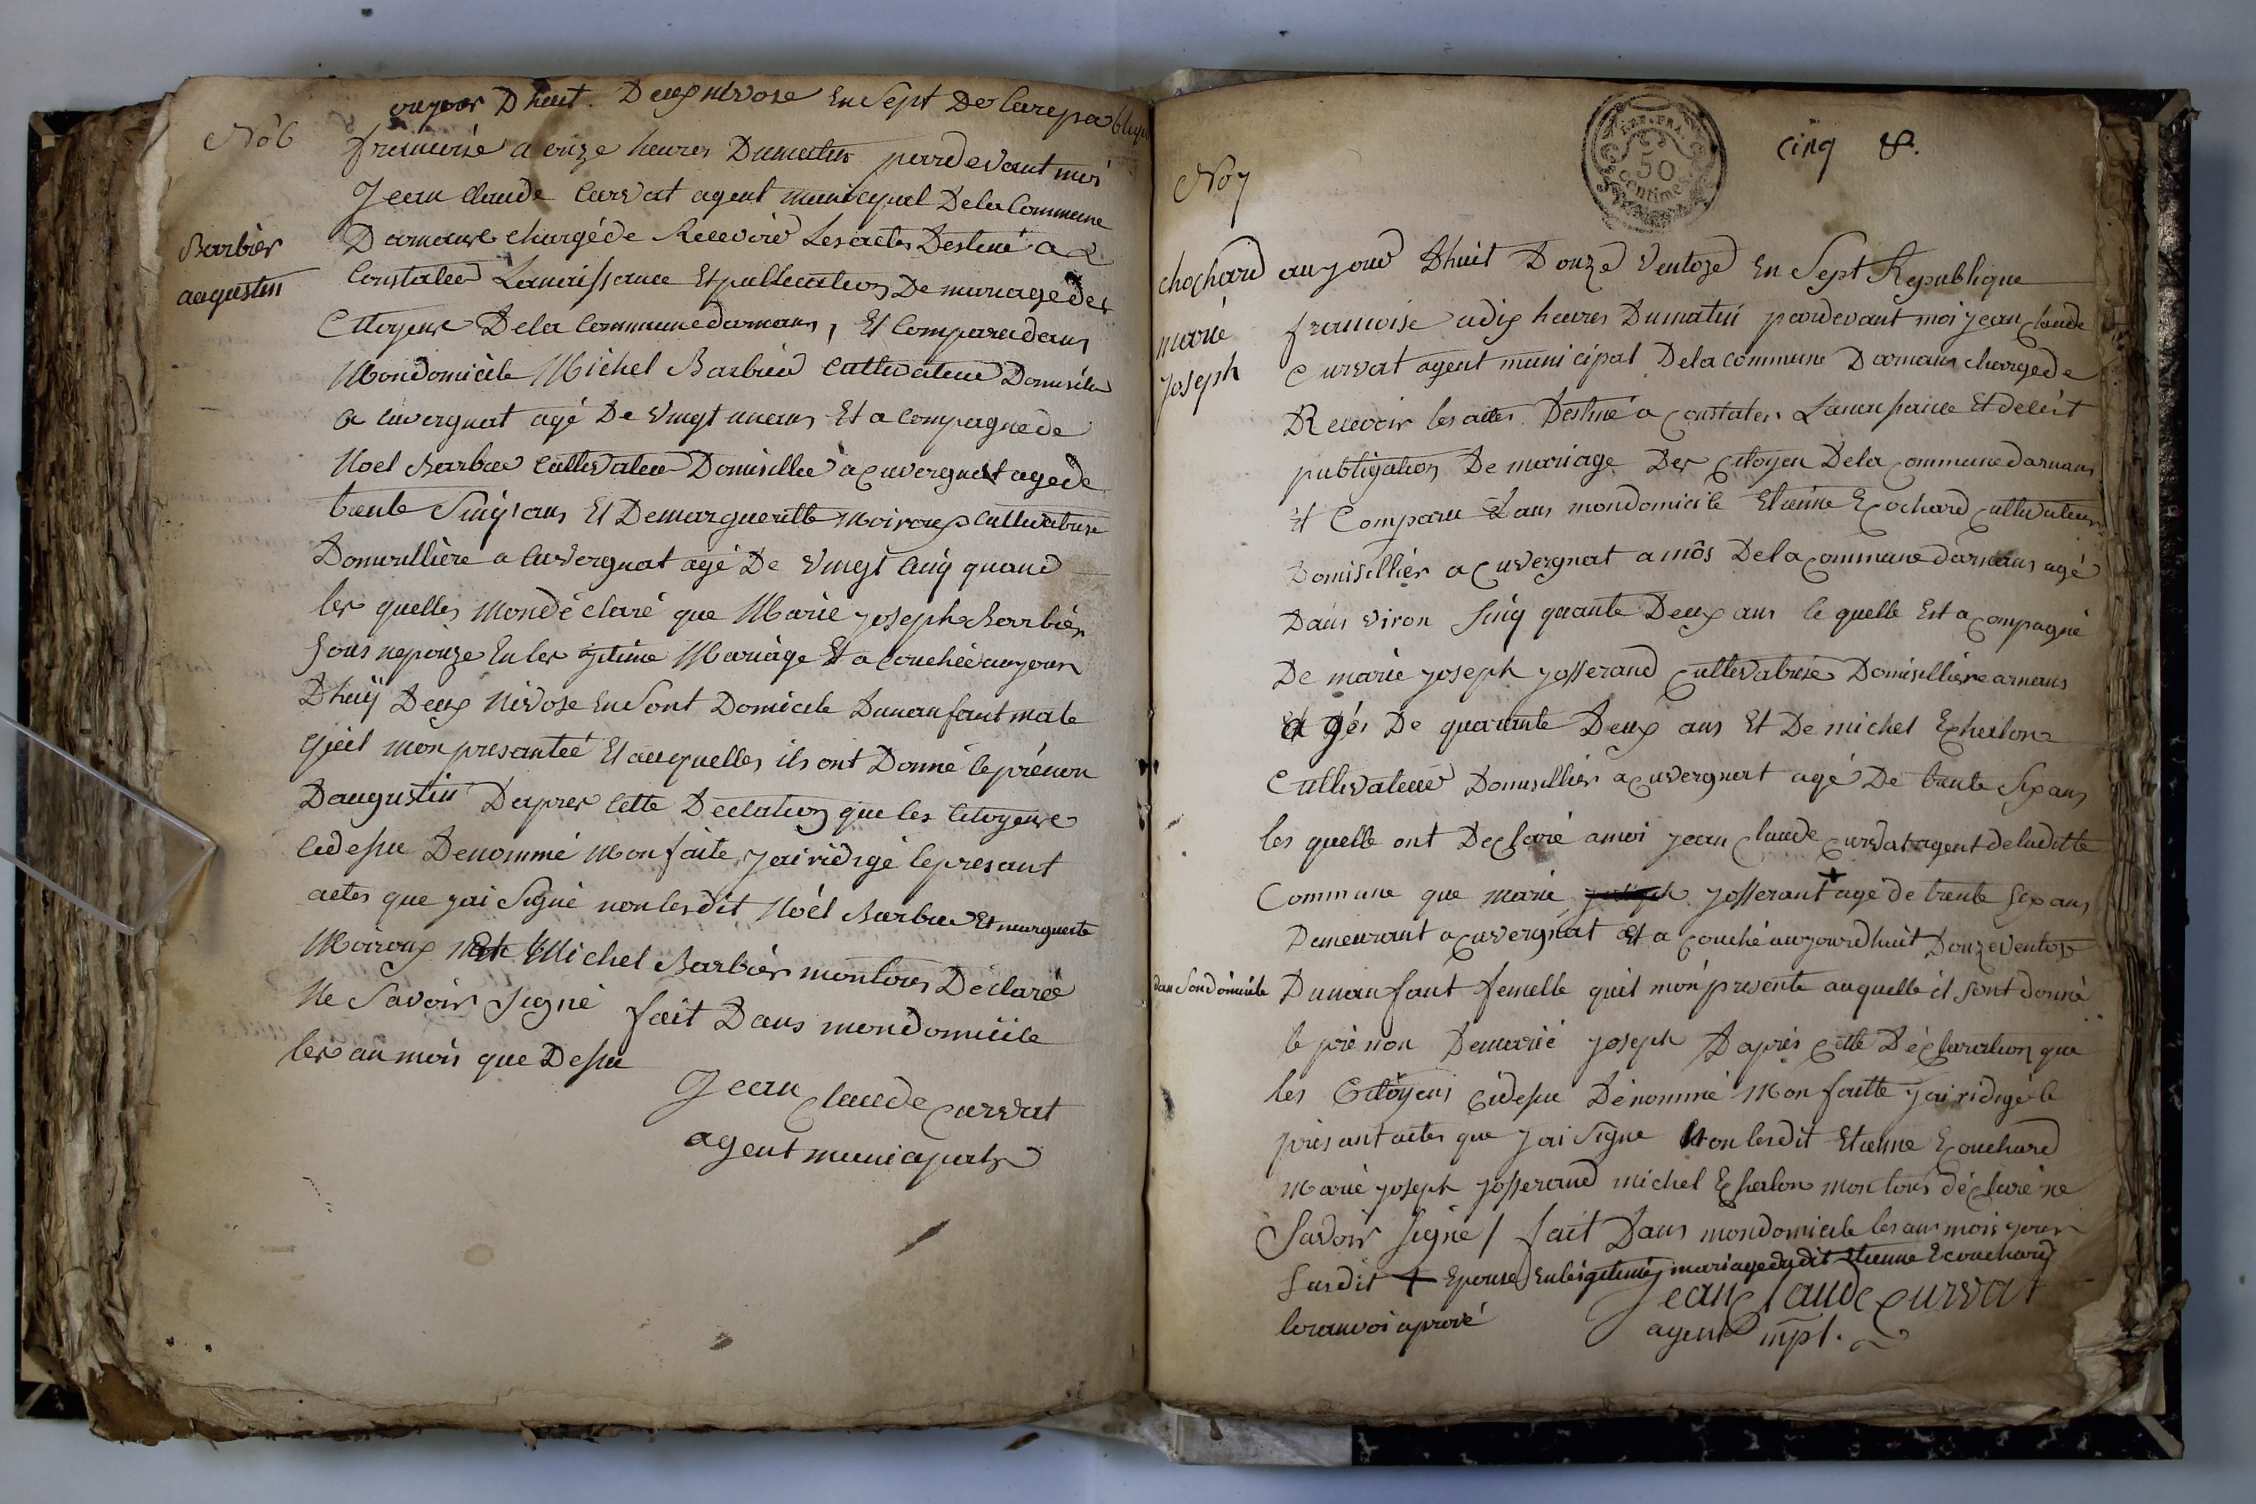 No 6
Barbier
augustin
aujour Dhuit Deux nivose En Sept De larepablique
francoise a onze heures Dumatin pardevant moi
Jean Claude Curvat agent municipal Dela Commune
Darnans chargé de Recevoir Les actes Destiné a
Constater Lanaissance Et publication De mariage des
Cittoyens Dela Commune darnans, Et Comparu dans
Mondomicile Michel Barbier Cultivateur Domicile
a Cuvergnat agé De Vingt un ans Et a Compagné de
Noel Barbier Cultivateur Domisillie a Cuvergnat agé de
trente Sinq ans Et Demarguerite Moiroux Cultivatrise
Domisillière a Cuvergnat agé De Vingt Cinq quand
les quelles Mondéclaré que Marie joseph Barbier
Sons nepouze En les gitime Mariage Et a Couchée aujour
Dhuÿ Deux Nivose En Sont Domicile Dunanfant male
quil mon presantéé Et auquelles ils ont Donné le prénon
Daugustin Dapres Cette Déclation que les Citoyens
Cidesu Denommé Mon faite jai ridigé lepresant
actes que jai Signé non lesdit Noél Barbier Et marguerite
Moiroux Michel Barbier montous Déclaré
Ne Savoir Signé fait Dans mondomicile
les an mois que Desu
Jean Claude Curvat
agent municipal
cinq
REP. FRA.
50
centimes
No 7
chochard
marie
joseph
aujour Dhuit Douze Ventoze En Sept Republique
francoise adix heures Dumatin pardevant moi jean Claude
Curvat agent municipal Dela commune Darnans chargé de
Recevoir les actes Destiné a Constater Lanaissance Et delêt
publigation De mariage Des Citoyen Dela Commune darnans
Et Comparu Dans mondomicile Etienne Ecochard Cultivateur
Domisillier a Cuvergnat a môs Dela Commune darnans agé
Dans viron Sinq quante Deux ans le quelle Est a Compagné
De marie joseph josserand Cultivatrise Domisillière arnans
agés De quarante Deux ans Et De michel Echalon
Cultivateur Domisillier a Cuvergnat agé De trante Six ans
les quelle ont Déclaré amoi jean Claude Curvat agent de ladite
Commune que marie josserant + agé de trente Six ans
Demeurant a Cuvergnat Et a Couché aujourdhuit Douze Ventos
dans Sondomicile Dunanfant femelle quil mon presente auquelle il sont donné
le prénon Demarié joseph Daprès Cette Déclaration que
les Citoyens Cidesu Dénommé Mon faitte jai ridigé le
présant actes que jai Signe Non lesdit Etienne Ecouchard
Marie joseph josserand michel Echalon mon tous déclaré ne
Savoir Signé / fait Dans mondomicile les ans mois jours
Susdit + Epouse En légitime mariage dudit Etienne Ecouchard
loranvoi aprové
Jean Claude Curvat
agent mpl.